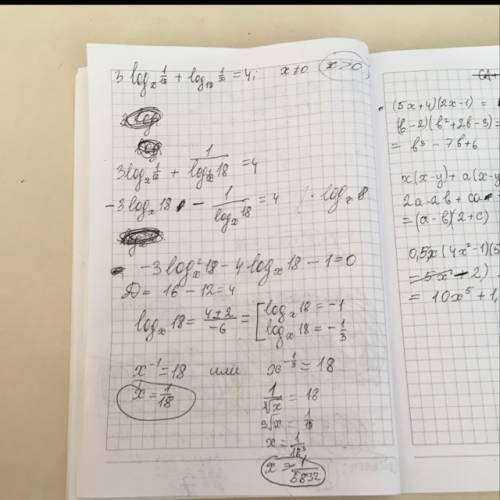 3 log_x 1/18 + log_18 1/x = 4; x ≠ 0 x > 0
3 log_x 1/18 + 1/log 18 = 4
-3 log_x 18 - 1/log_x 18 = 4 | · log_x 18
-3 log²_x 18 - 4 log_x 18 - 1 = 0
D = 16 - 12 = 4
log_x 18 = (4±2)/-6 = [ log_x 18 = -1
log_x 18 = -1/3
x⁻¹ = 18 или x^(-1/3) = 18
x = 1/18
1/∛x = 18
∛x = 1/18
x = 1/18³
x = 1/5832
(5x+4)(2x-1) =
(b-2)(b²+2b-3) =
= b³ - 7b + 6
x(x-y) + a(x-y
2a - ab +
= (a-b)(2+c)
0,5x(4x²-1)(5
- 5x² + 2)
= 10x⁵ + 1,